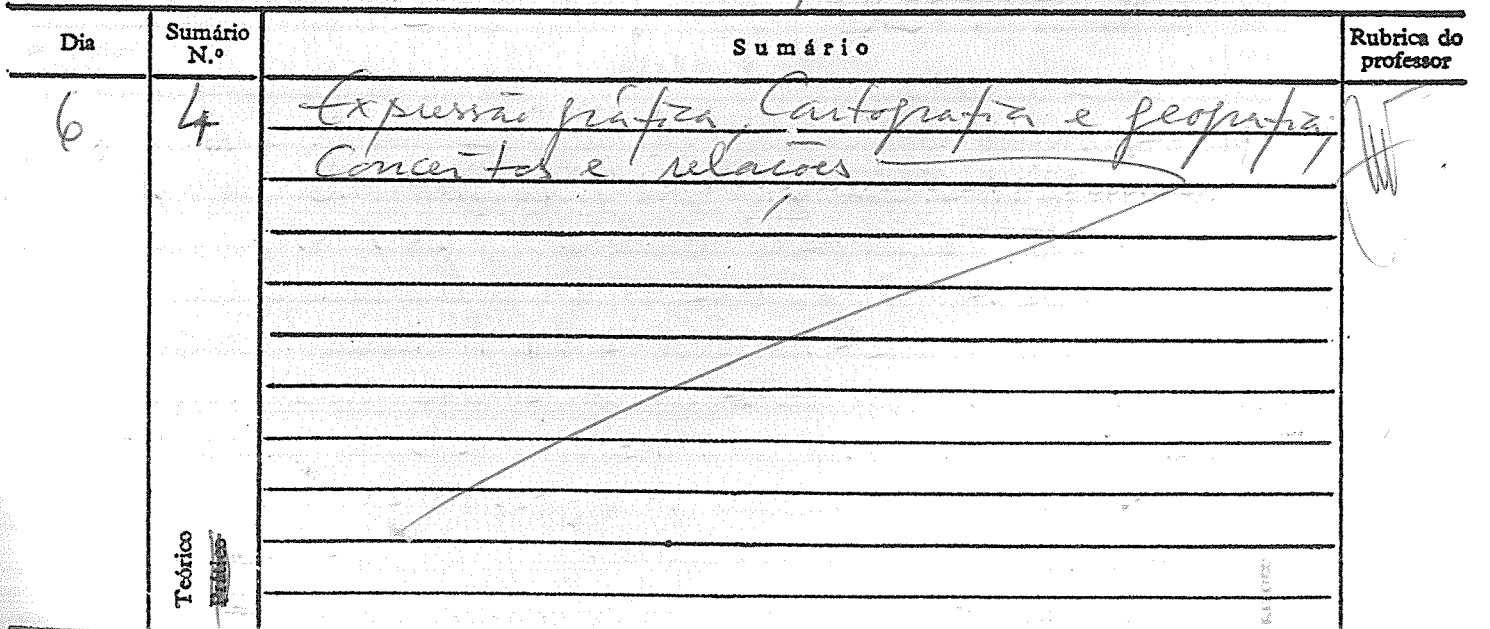 Dia
Sumário N.º
Sumário
Rubrica do professor
6
4
Expressão gráfica, Cartografia e geografia;
Conceitos e relações
Teórico
Prático